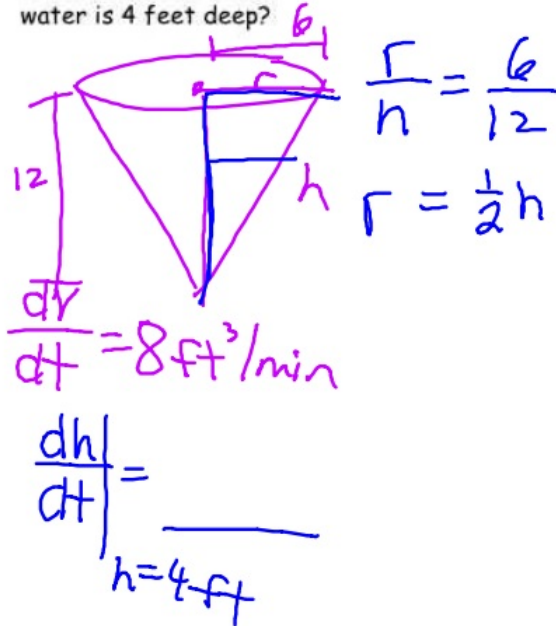 water is 4 feet deep?
6
r
r/h = 6/12
12
h
r = 1/2 h
dV/dt = 8 ft³/min
dh/dt | =
h=4 ft